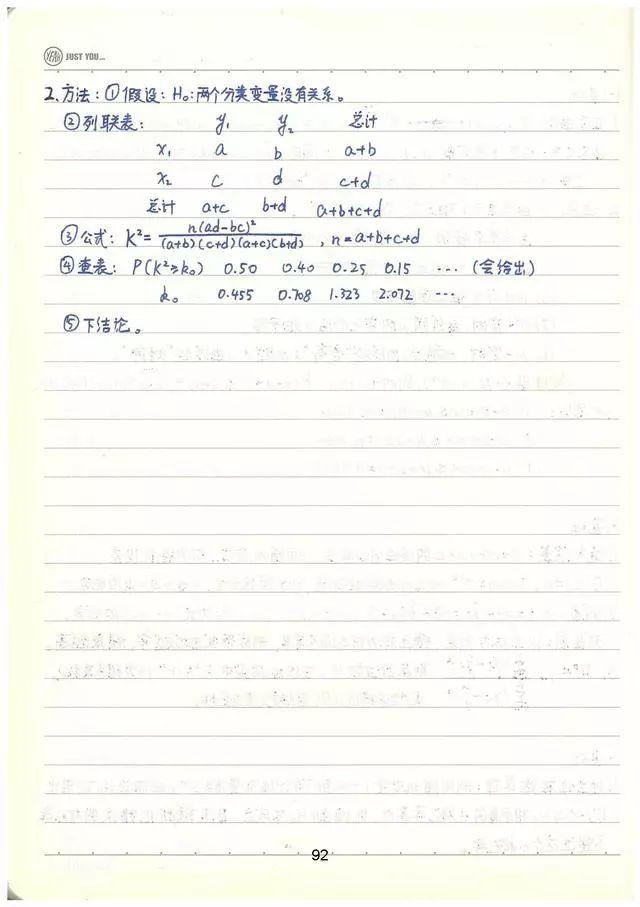 YEAH JUST YOU...
2、方法：①假设：H₀：两个分类变量没有关系。
②列联表： y₁ y₂ 总计
x₁ a b a+b
x₂ c d c+d
总计 a+c b+d a+b+c+d
③公式：K²= n(ad-bc)² / (a+b)(c+d)(a+c)(b+d) ，n=a+b+c+d
④查表：P(K²≥k₀) 0.50 0.40 0.25 0.15 … (会给出)
k₀ 0.455 0.708 1.323 2.072 …
⑤下结论。
92